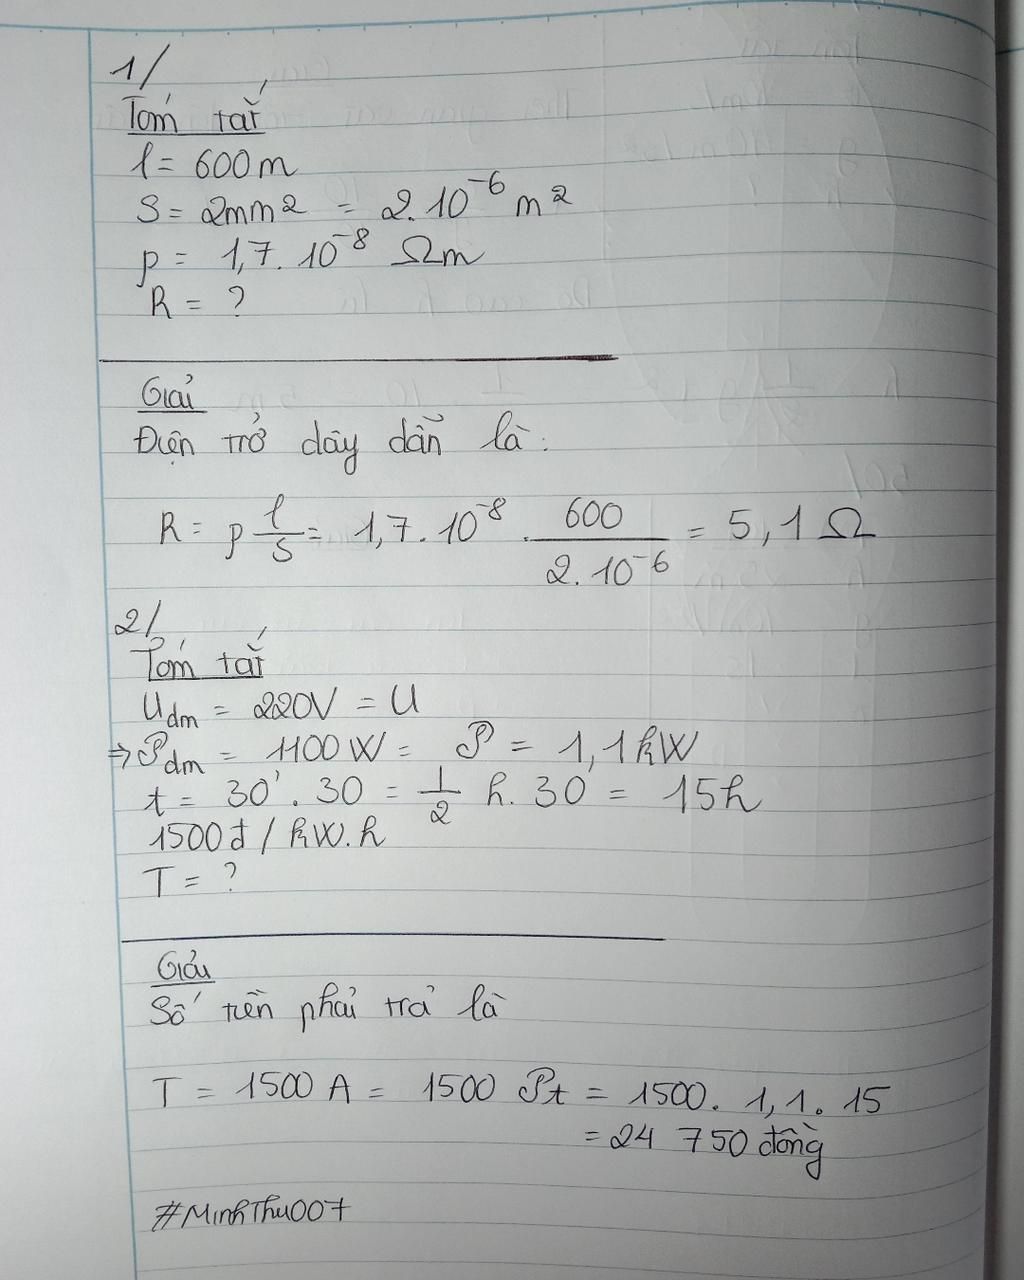 1/
Tóm tắt
l = 600m
S = 2mm² = 2.10⁻⁶ m²
ρ = 1,7.10⁻⁸ Ωm
R = ?
Giải
Điện trở dây dẫn là:
R = ρ l/S = 1,7.10⁻⁸ . 600/2.10⁻⁶ = 5,1 Ω
2/
Tóm tắt
Udm = 220V = U
⇒ 𝒫dm = 1100W = 𝒫 = 1,1kW
t = 30'.30 = 1/2 h.30 = 15h
1500đ/kW.h
T = ?
Giải
Số tiền phải trả là
T = 1500 A = 1500 𝒫t = 1500. 1,1. 15
= 24 750 đồng
#MinhThu007